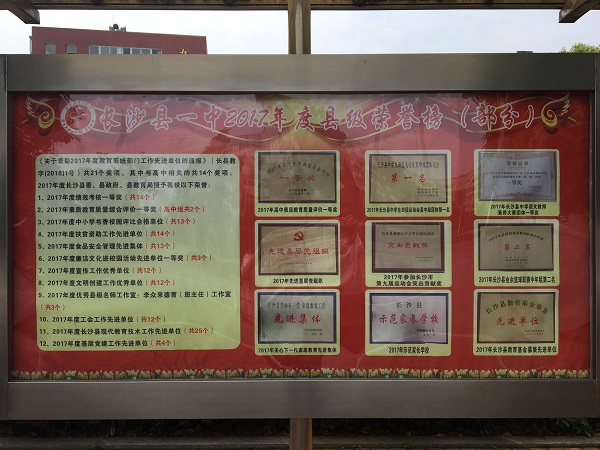 长沙县一中2017年度县级荣誉榜（部分）
《关于表彰2017年度教育系统部门工作先进单位的通报》（长县教
字[2018]1号）共21个奖项，其中与高中相关的共14个奖项，
2017年度长沙县委、县政府、县教育局授予我校以下荣誉：
1、2017年度绩效考核一等奖（共14个）
2、2017年度素质教育质量综合评价一等奖（高中组共2个）
3、2017年度中小学书香校园评比合格单位（共13个）
4、2017年度扶贫资助工作先进单位（共14个）
5、2017年度食品安全管理先进集体（共13个）
6、2017年度廉洁文化进校园活动先进单位一等奖（共3个）
7、2017年度宣传工作优秀单位（共12个）
8、2017年度文明创建工作优秀单位（共12个）
9、2017年度优秀县级名师工作室：李众来德育（班主任）工作室
（共3个）
10、2017年度工会工作先进单位（共12个）
11、2017年度长沙县现代教育技术工作先进单位（共25个）
12、2017年度基层党建工作先进单位（共4个）
一等奖
2017年高中素质教育质量评价一等奖
第一名
2017年长沙县中学生田径运动会高中组团体第一名
荣誉证书
一等奖
2017年长沙县中学语文教师
素养大赛团体一等奖
先进基层党组织
2017年先进基层党组织
突出贡献奖
2017年参加长沙市
第九届运动会突出贡献奖
第二名
2017年长沙县业余篮球联赛中年组第二名
先进集体
2017年关心下一代家庭教育先进集体
长沙县
示范家长学校
2017年示范家长学校
长沙县教育基金募集
先进单位
2017年长沙县教育基金募集先进单位